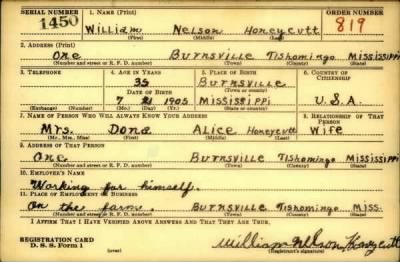 SERIAL NUMBER 1. NAME (Print) ORDER NUMBER
1450 William Nelson Honeycutt 819
(First) (Middle) (Last)
2. ADDRESS (Print)
One Burnsville Tishomingo Mississippi
(Number and street or R. F. D. number) (Town) (County) (State)
3. TELEPHONE 4. AGE IN YEARS 5. PLACE OF BIRTH 6. COUNTRY OF CITIZENSHIP
35 Burnsville
DATE OF BIRTH (Town or county)
7 21 1905 Mississippi U.S.A.
(Exchange) (Number) (Mo.) (Day) (Yr.) (State or country)
7. NAME OF PERSON WHO WILL ALWAYS KNOW YOUR ADDRESS 8. RELATIONSHIP OF THAT PERSON
Mrs. Dona Alice Honeycutt Wife
(Mr., Mrs., Miss) (First) (Middle) (Last)
9. ADDRESS OF THAT PERSON
One Burnsville Tishomingo Mississippi
(Number and street or R. F. D. number) (Town) (County) (State)
10. EMPLOYER'S NAME
Working for himself.
11. PLACE OF EMPLOYMENT OR BUSINESS
On the farm. Burnsville Tishomingo Miss.
(Number and street or R. F. D. number) (Town) (County) (State)
I AFFIRM THAT I HAVE VERIFIED ABOVE ANSWERS AND THAT THEY ARE TRUE.
REGISTRATION CARD
D. S. S. Form 1 (over) William Nelson Honeycutt
(Registrant's signature)